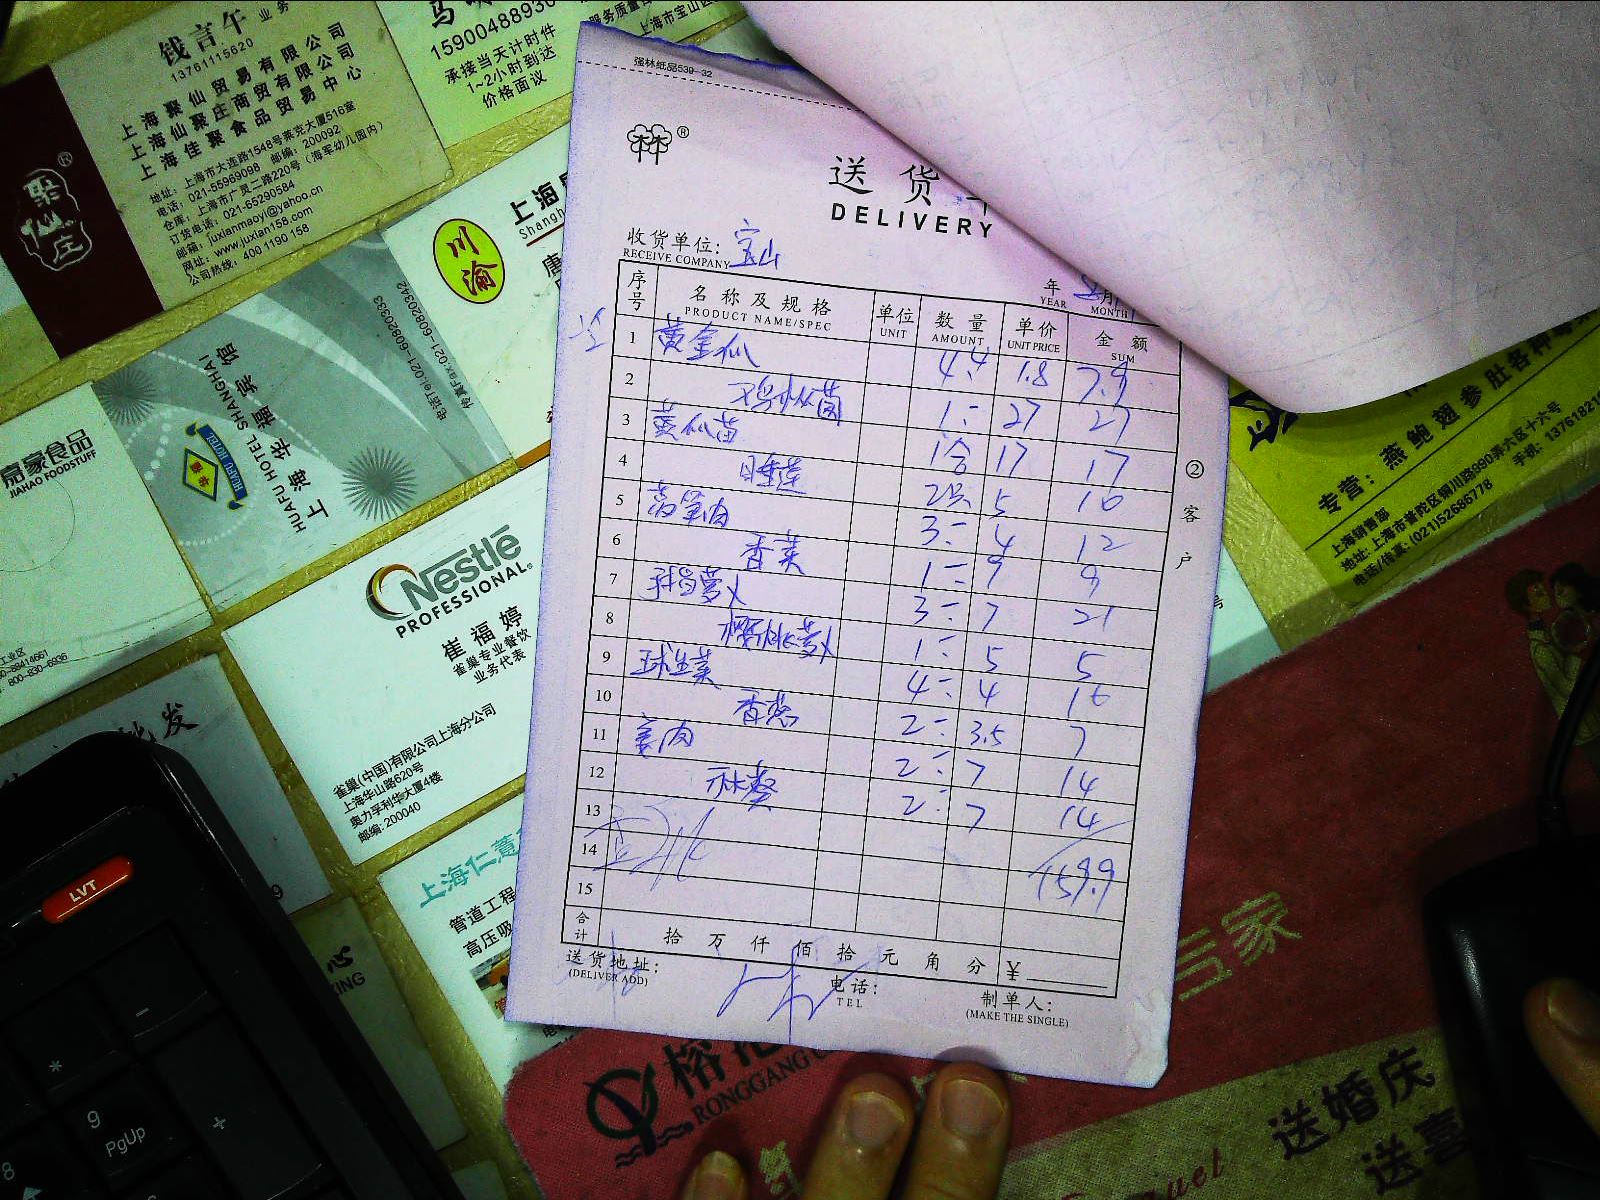 钱言午 业务
13761115620
上海聚仙贸易有限公司
上海仙聚庄商贸有限公司
上海佳聚食品贸易中心
地址: 上海市大连路1548号莱克大厦516室
电话: 021-55969098 邮编: 200092
仓库: 上海市广灵二路220号 (海军幼儿园内)
订货电话: 021-65290584
邮箱: juxianmaoyi@yahoo.cn
网址: www.juxian158.com
公司热线: 400 1190 158
聚仙庄
承接当天计时件
1~2小时到达
价格面议
服务质量
上海市宝山区
川渝
上海
Shangh
唐
嘉家食品
JIAHAO FOODSTUFF
上海华福宾馆
HUAFU HOTEL SHANGHAI
电话Tel:021-60820342
传真Fax:021-60820333
HUAFU HOTEL
Nestlé
PROFESSIONAL
崔福婷
雀巢专业餐饮
业务代表
雀巢(中国)有限公司上海分公司
上海华山路620号
奥力孚利华大厦4楼
邮编: 200040
批发
上海仁薏
管道工程
高压吸
强林纸品539-32
林林®
送货单
DELIVERY
收货单位: 宝山
RECEIVE COMPANY
年 月
YEAR MONTH
序号 名称及规格 单位 数量 单价 金额
PRODUCT NAME/SPEC UNIT AMOUNT UNIT PRICE SUM
1 黄金瓜 4.4 1.8 7.9
2 鸡冰菌 1= 27 27
3 黄瓜苗 1合 17 17
4 日睡莲 2只 5 10
5 3= 4 12
6 香菜 1= 9 9
7 3= 7 21
8 樱桃萝卜 1= 5 5
9 球生菜 4= 4 16
10 香葱 2= 3.5 7
11 姜肉 2= 7 14
12 秋葵 2= 7 14
13
14 159.9
15
合计 拾 万 仟 佰 拾 元 角 分 ¥
送货地址: 电话: 制单人:
(DELIVER ADD) TEL (MAKE THE SINGLE)
② 客户
专营: 燕鲍翅参肚名
上海销售部
地址: 上海市普陀区铜川路990弄六区十六号
电话/传真: (021)52686778 手机: 1376182
LVT
9
PgUp
8
*
-
+
榕
RONGGANG
送婚庆
送喜